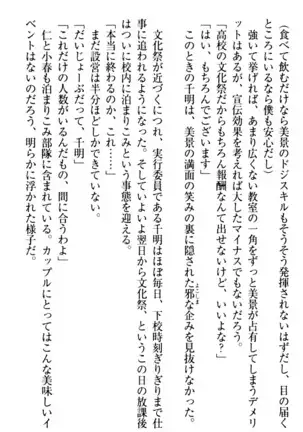 (食べて飲むだけなら美景のドジスキルもそうそう発揮されないはずだし、目の届く
ところにいるなら僕も安心だし)
強いて挙げれば、あまり広くない教室の一角をずっと美景が占有してしまうデメリ
ットはあるが、宣伝効果を考えれば大したマイナスでもないだろう。
「高校の文化祭だからもちろん報酬なんて出せないけど、いいよな?」
「はい、もちろんでございます」
このときの千明は、美景の満面の笑みの裏に隠された邪な企みを見抜けなかった。
よこしま
文化祭が近づくにつれ、実行委員である千明はほぼ毎日、下校時刻ぎりぎりまで仕
事に追われるようになった。そしていよいよ翌日から文化祭、というこの日の放課後
はついに校内に泊まりこみという事態を迎える。
「本当に終わるのか、これ……」
まだ設営は半分ほどしかできていない。
「だいじょーぶだって、千明」
「これだけの人数がいるんだもの、間に合うわよ」
仁と小春も泊まりこみ部隊に含まれている。カップルにとってはこんな美味しいイ
ベントはないのだろう、明らかに浮かれた様子だ。